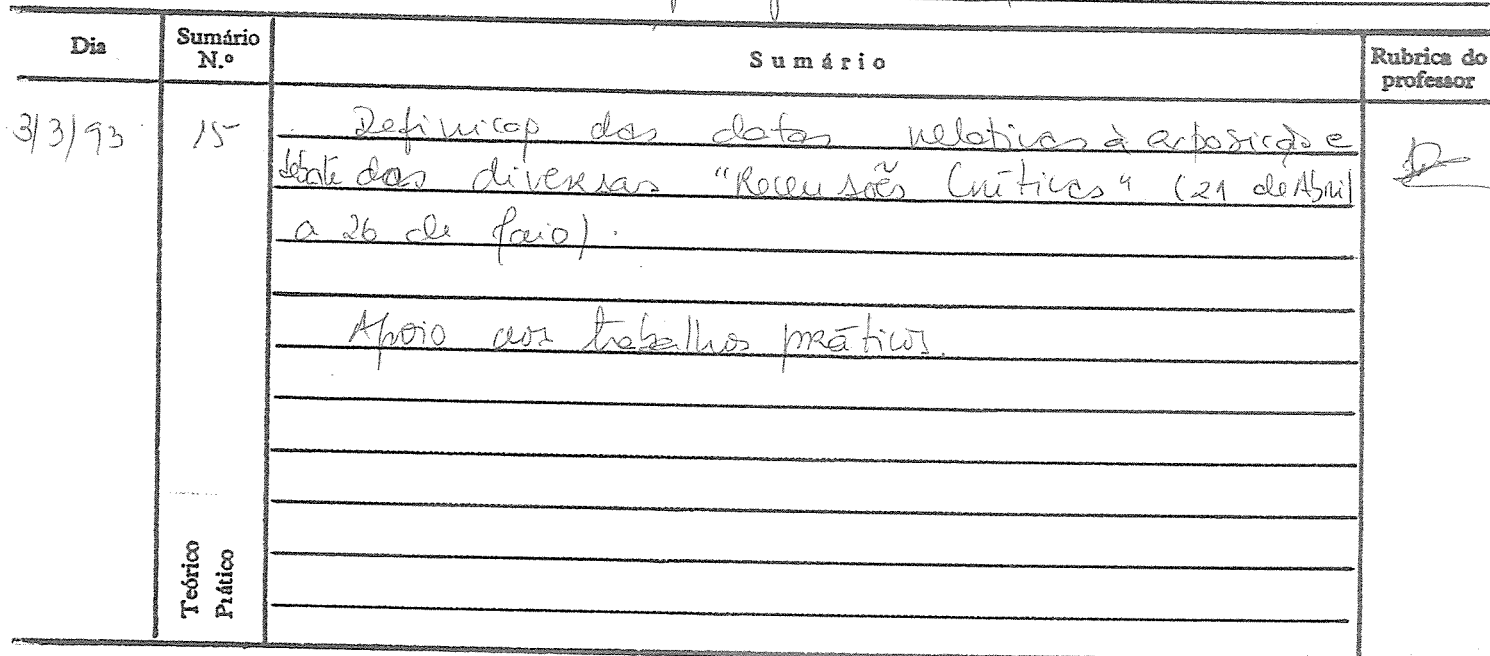 Dia Sumário N.º Sumário Rubrica do professor
3/3/93 15 Definição das datas relativas à exposição e
debate das diversas "Recensões Críticas" (21 de Abril
a 26 de Maio).
Apoio aos trabalhos práticos.
Teórico
Prático